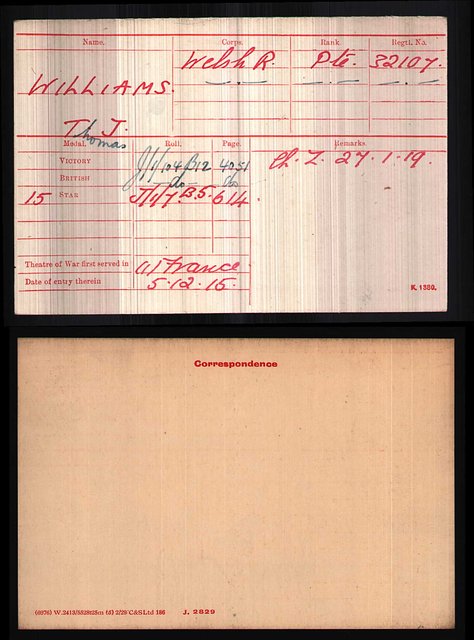 Name. Corps. Rank. Regtl. No.
WILLIAMS. Welsh R. Pte. 32107.
T. J.
Thomas
Medal. Roll. Page. Remarks.
VICTORY J/1/104 B12 4051 Cl. Z. 27.1.19.
BRITISH do do
15 STAR J/1/7.B.5. 614
Theatre of War first served in (1) France
Date of entry therein 5.12.15.
K. 1380.
Correspondence
(6976) W.2413/5528t25m (5) 2/29 C&SLtd 186 J. 2829